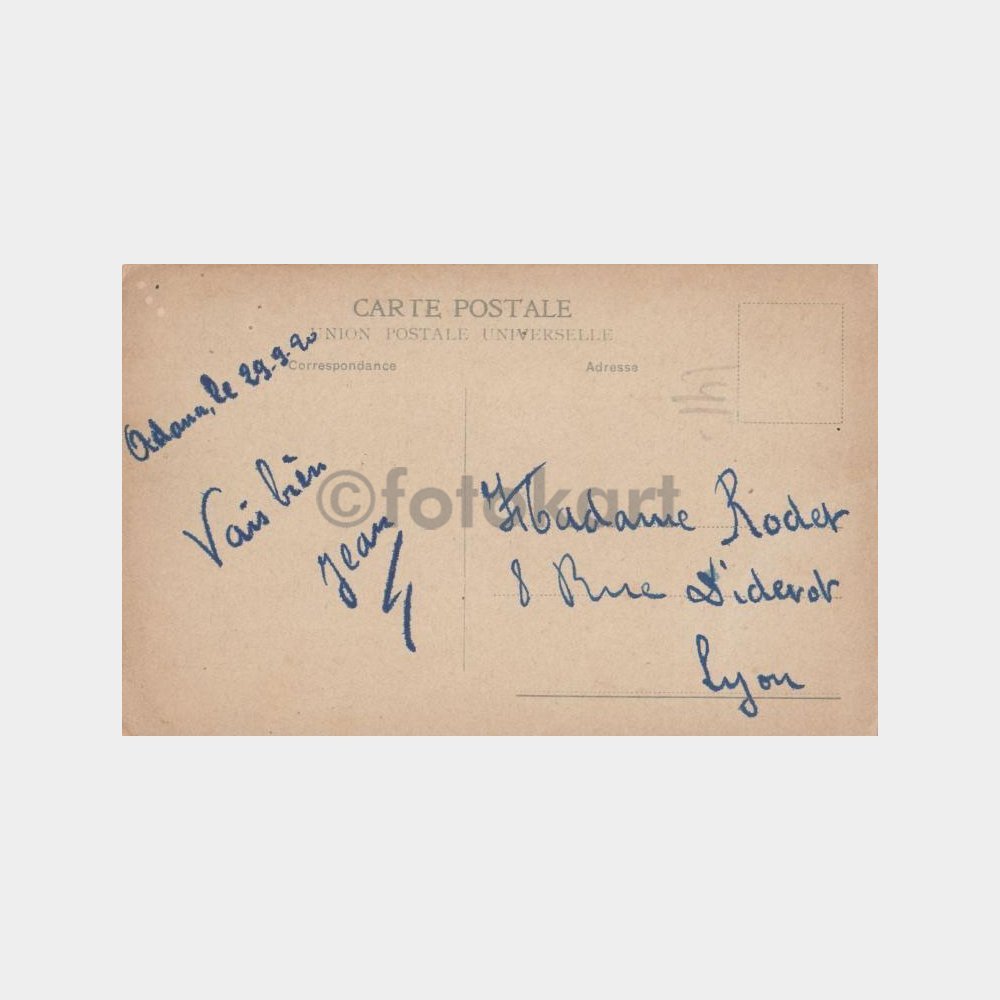 CARTE POSTALE
UNION POSTALE UNIVERSELLE
Correspondance
Adresse
Adana, le 29.9.20
Vais bien
Jean
Madame Roder
8 Rue Diderot
Lyon
©fotokart